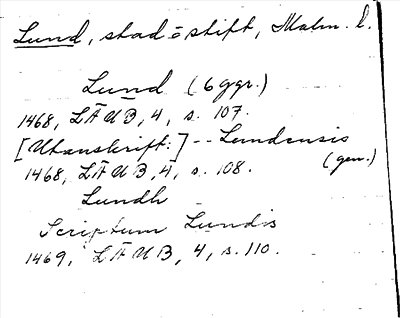 Lund, stad o stift, Malm. l.
Lund (6 ggr.)
1468, LÄUB, 4, s. 107.
[Utanskrift:] -- Lundensis
(gen.)
1468, LÄUB, 4, s. 108.
Lundh
Scriptum Lundis
1469, LÄUB, 4, s. 110.